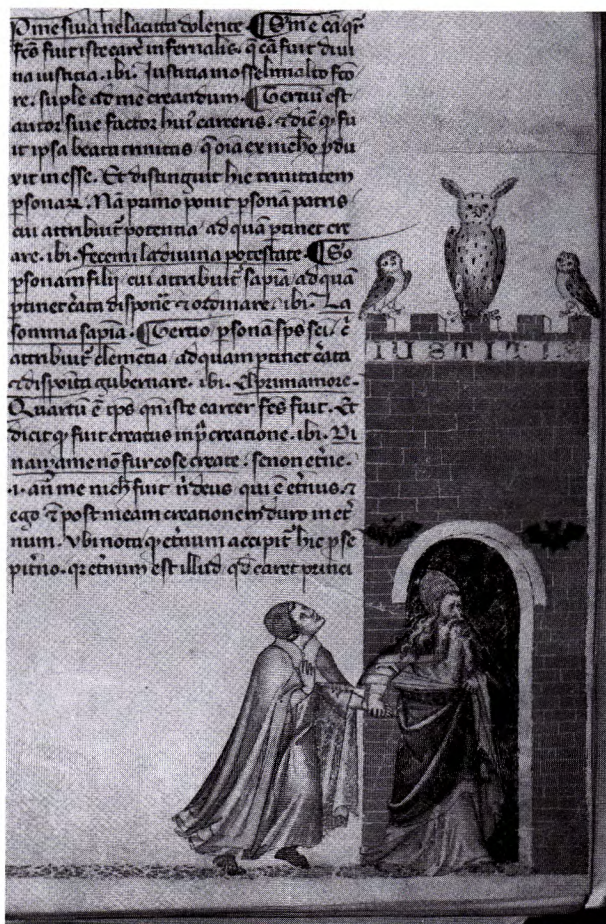 P me siva nela citta dolente. Sine ca qr̄
fcs̄ fuit iste carc̄ infernalis. q̄ cā fuit diui
na iusticia. ibi. Justitia mosse lmialto fcō
re. suple ad me creandum. Tertiū est
auctor siue factor hui᷒ carceris. ⁊ dic̄ ꝙ fu
it ipsa beata trinitas q̄ oīa ex nich̄o ꝓdu
xit in esse. Et distinguit hic trinitatem
ꝑsonaꝝ. Nā primo ponit ꝑsonā patris
cui attribuit᷑ potentia. ad quā ꝑtinet cre
are. ibi. fecemi la diuina potestate. So
ꝑsonam filij cui attribuit᷑ sapīa ad quā
ꝑtinet c̄ata disponē ⁊ ordinare. ibi. La
somma sapīa. Tertio ꝑsona sp̄s sc̄i. c̄
attribuit᷑ clemētia. ad quam ꝑtinet c̄ata
⁊ disposita gubernare. ibi. El primamore.
Quartū ē tp̄s qn̄ iste carcer fcs̄ fuit. Et
dicit ꝙ fuit creatus in p̄ creatione. ibi. Di
nanzi ame nō fur cose create. se non etn̄e.
.i. an̄ me nich̄ fuit n̄ deus qui ē et̄nus. ⁊
ego ī post meam creationem duro in et̄
num. Vbi nota ꝙ et̄num accipit᷑ hic ꝑ se
pit̄no. qr̄ et̄num est illud qd̄ caret princi
IUSTITIA